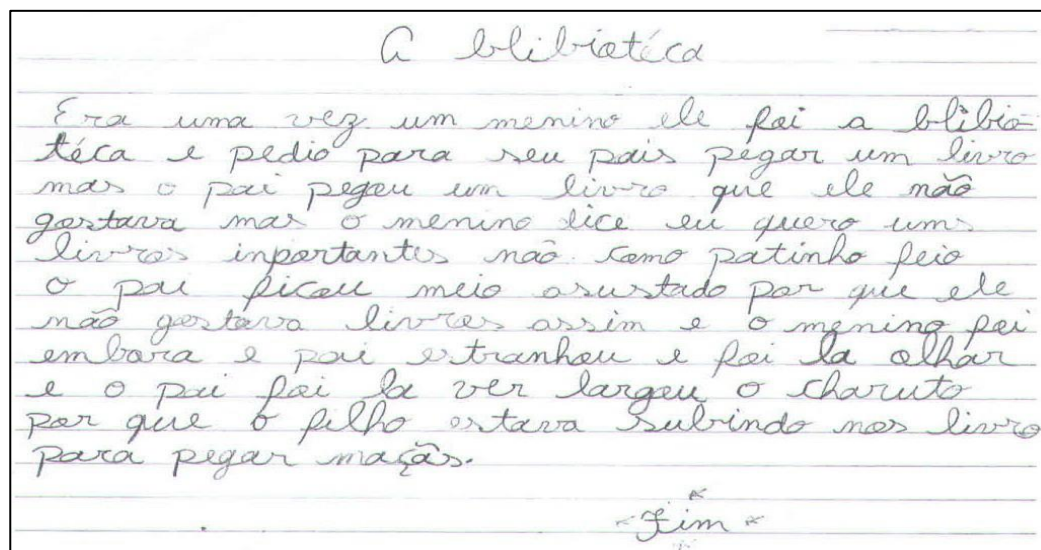 A blibiotéca
Era uma vez um menino ele foi a blibio-
téca e pedio para seu pais pegar um livro
mas o pai pegou um livro que ele não
gostava mas o menino dice eu quero ums
livros inportantes não como patinho feio
o pai ficou meio asustado por que ele
não gostava livros assim e o menino foi
embora e pai estranhou e foi la olhar
e o pai foi la ver largou o charuto
por que o filho estava subindo nos livro
para pegar maçãs.
Fim